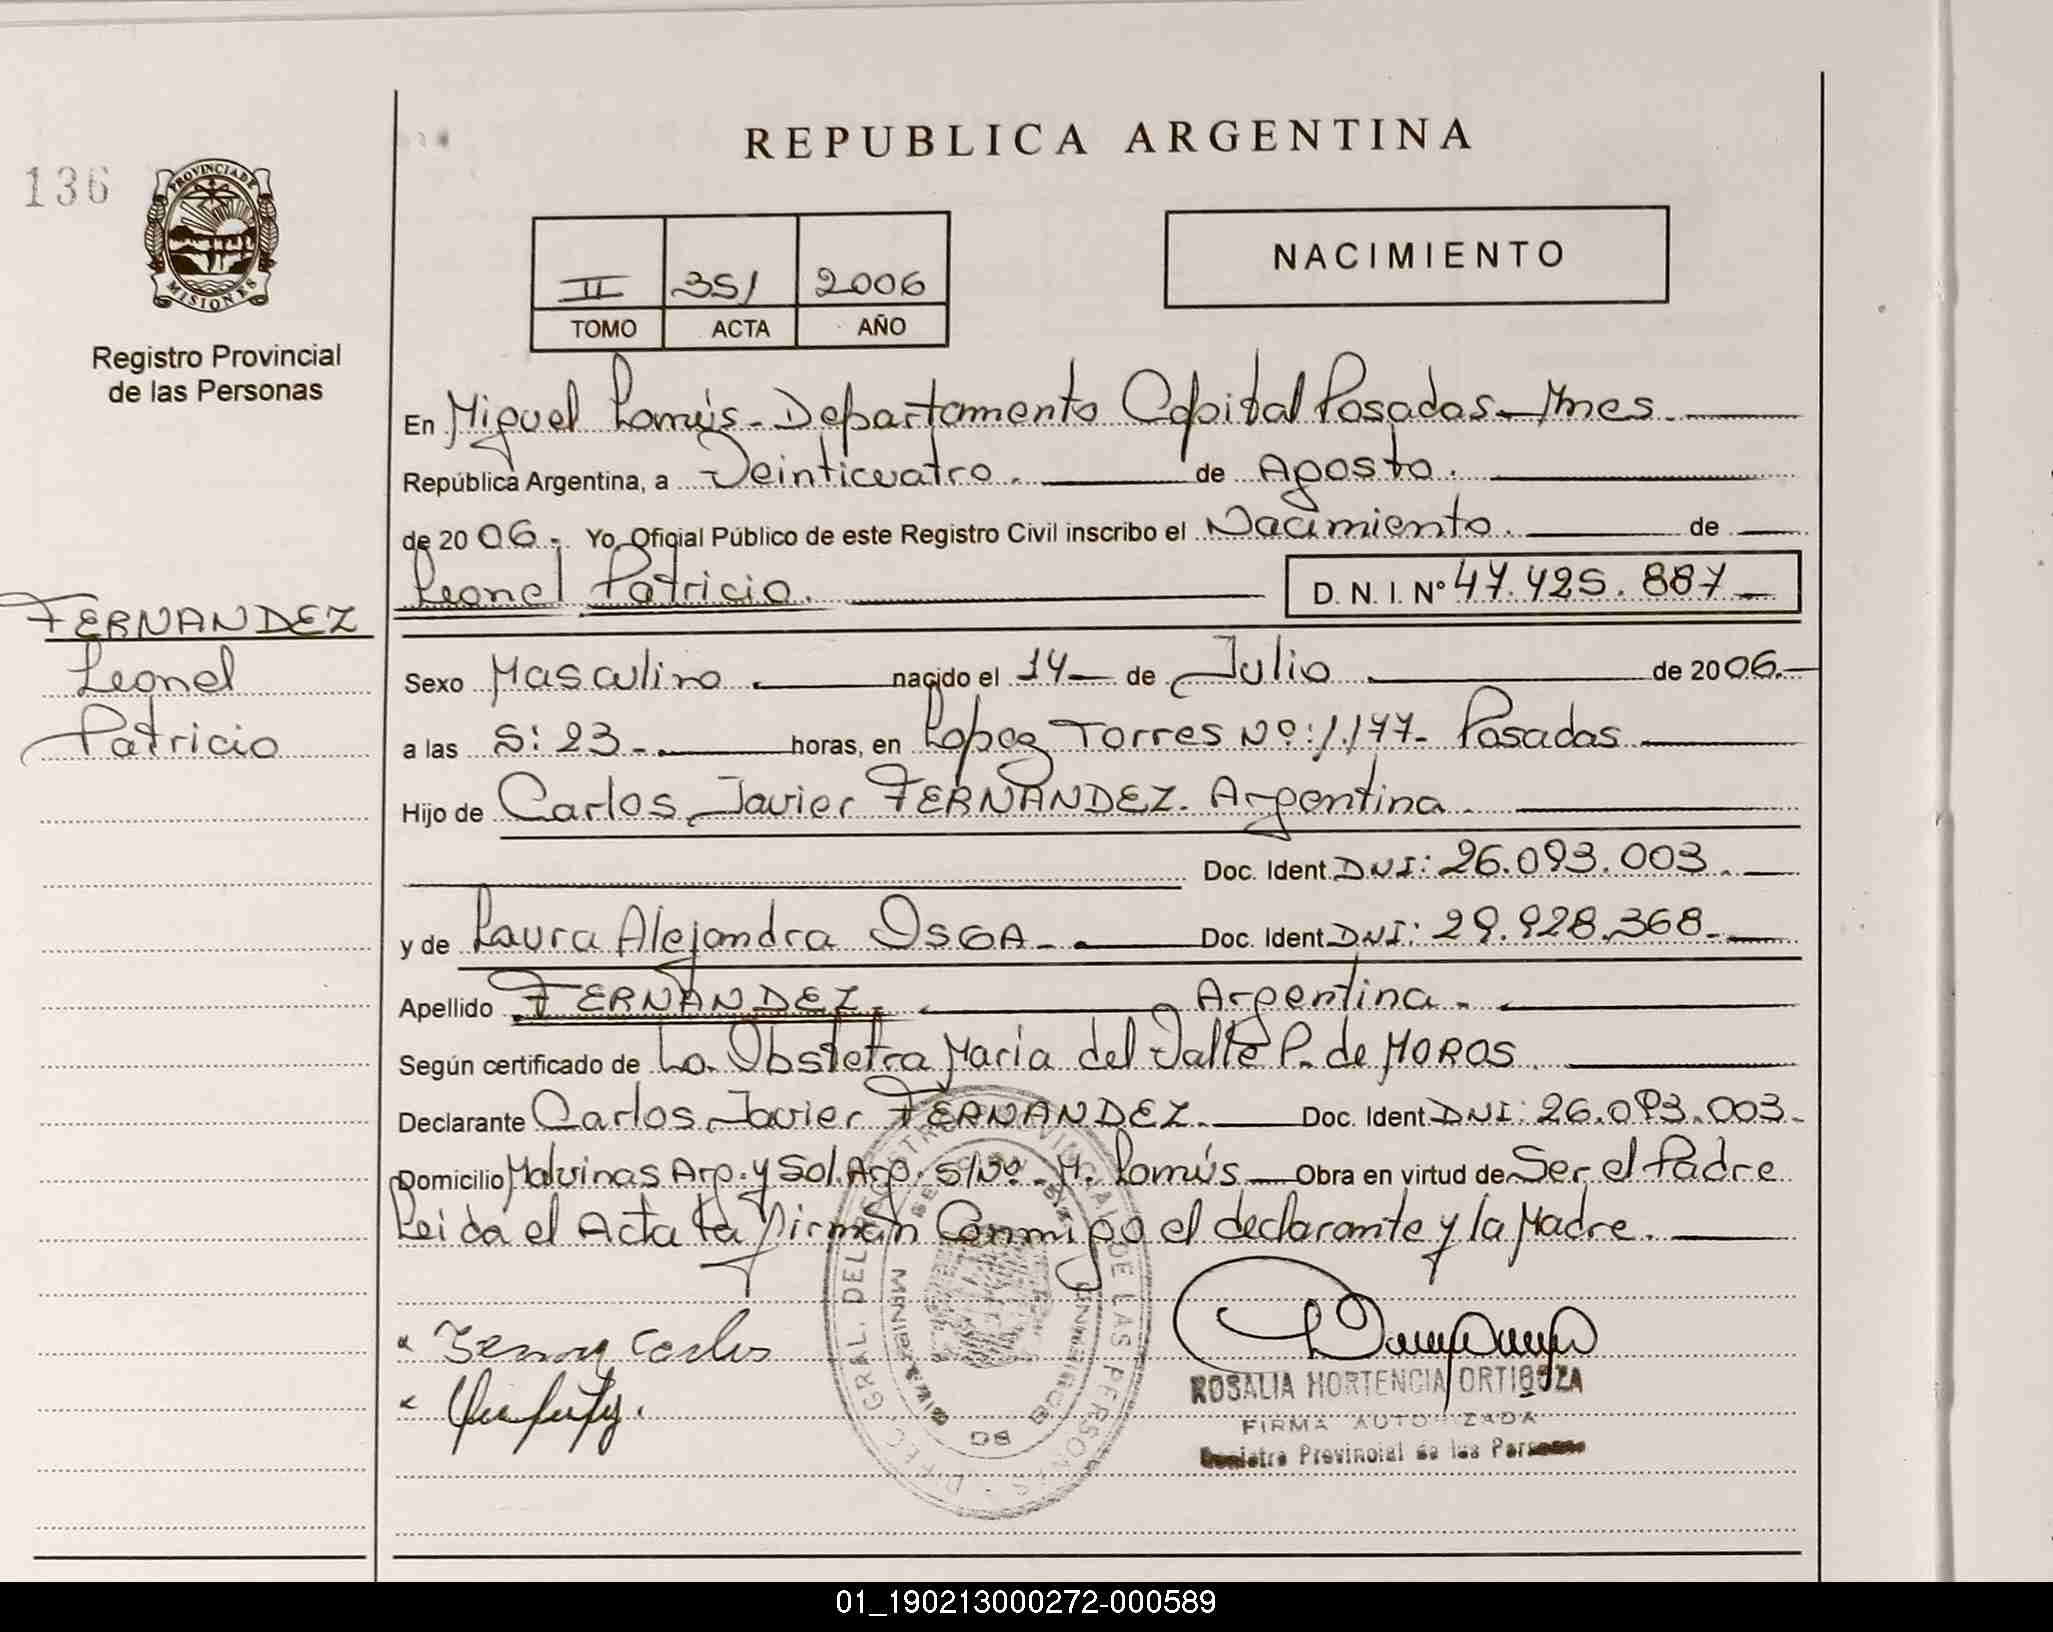 REPUBLICA ARGENTINA
136
PROVINCIA DE MISIONES
Registro Provincial
de las Personas
II 351 2006
TOMO ACTA AÑO
NACIMIENTO
En Miguel Lanús - Departamento Capital Posadas - Mnes.
República Argentina, a Veinticuatro. de Agosto.
de 2006.- Yo Oficial Público de este Registro Civil inscribo el Nacimiento. de
Leonel Patricio. D. N. I. Nº 47.425.887
FERNANDEZ
Leonel
Patricio
Sexo Masculino. nacido el 14 de Julio de 2006.
a las 5:23 - horas, en Lopez Torres Nº: 1.177 - Posadas
Hijo de Carlos Javier FERNANDEZ. Argentina.
Doc. Ident. DNI: 26.093.003.
y de Laura Alejandra OSGA - Doc. Ident. DNI: 29.928.368.
Apellido FERNANDEZ. Argentina.
Según certificado de La Obstetra Maria del Valle P. de MOROS
Declarante Carlos Javier FERNANDEZ. Doc. Ident. DNI: 26.093.003.
Domicilio Malvinas Arg. y Sol. Arg. S/Nº - M. Lanús Obra en virtud de Ser el Padre
Leida el Acta la firman Conmigo el declarante y la Madre.
Carlos
ROSALIA HORTENCIA ORTIGOZA
FIRMA AUTORIZADA
Registro Provincial de las Personas
01_190213000272-000589